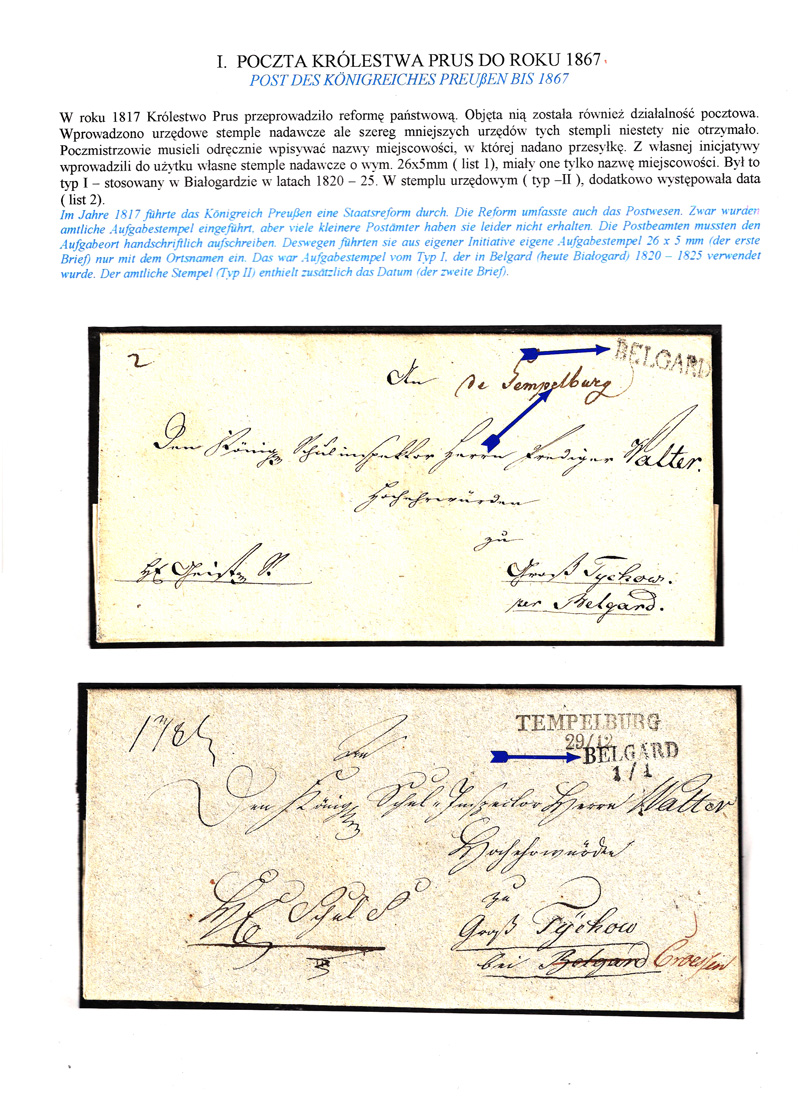 I. POCZTA KRÓLESTWA PRUS DO ROKU 1867
POST DES KÖNIGREICHES PREUßEN BIS 1867
W roku 1817 Królestwo Prus przeprowadziło reformę państwową. Objęta nią została również działalność pocztowa.
Wprowadzono urzędowe stemple nadawcze ale szereg mniejszych urzędów tych stempli niestety nie otrzymało.
Poczmistrzowie musieli odręcznie wpisywać nazwy miejscowości, w której nadano przesyłkę. Z własnej inicjatywy
wprowadzili do użytku własne stemple nadawcze o wym. 26x5mm ( list 1), miały one tylko nazwę miejscowości. Był to
typ I – stosowany w Białogardzie w latach 1820 – 25. W stemplu urzędowym ( typ –II ), dodatkowo występowała data
( list 2).
Im Jahre 1817 führte das Königreich Preußen eine Staatsreform durch. Die Reform umfasste auch das Postwesen. Zwar wurden
amtliche Aufgabestempel eingeführt, aber viele kleinere Postämter haben sie leider nicht erhalten. Die Postbeamten mussten den
Aufgabeort handschriftlich aufschreiben. Deswegen führten sie aus eigener Initiative eigene Aufgabestempel 26 x 5 mm (der erste
Brief) nur mit dem Ortsnamen ein. Das war Aufgabestempel vom Typ I, der in Belgard (heute Białogard) 1820 – 1825 verwendet
wurde. Der amtliche Stempel (Typ II) enthielt zusätzlich das Datum (der zweite Brief).
2
BELGARD
An de Tempelburg
Den König Schulinspektor Herrn Prediger Walter.
Hochehrwürden
zu
Groß Tychow.
per Belgard.
TEMPELBURG
29/12
BELGARD
1/1
An
Den König Schul-Inspector Herrn Walter
Hochehrwürden
zu
Schul S
Groß Tychow
bei Belgard Croessin